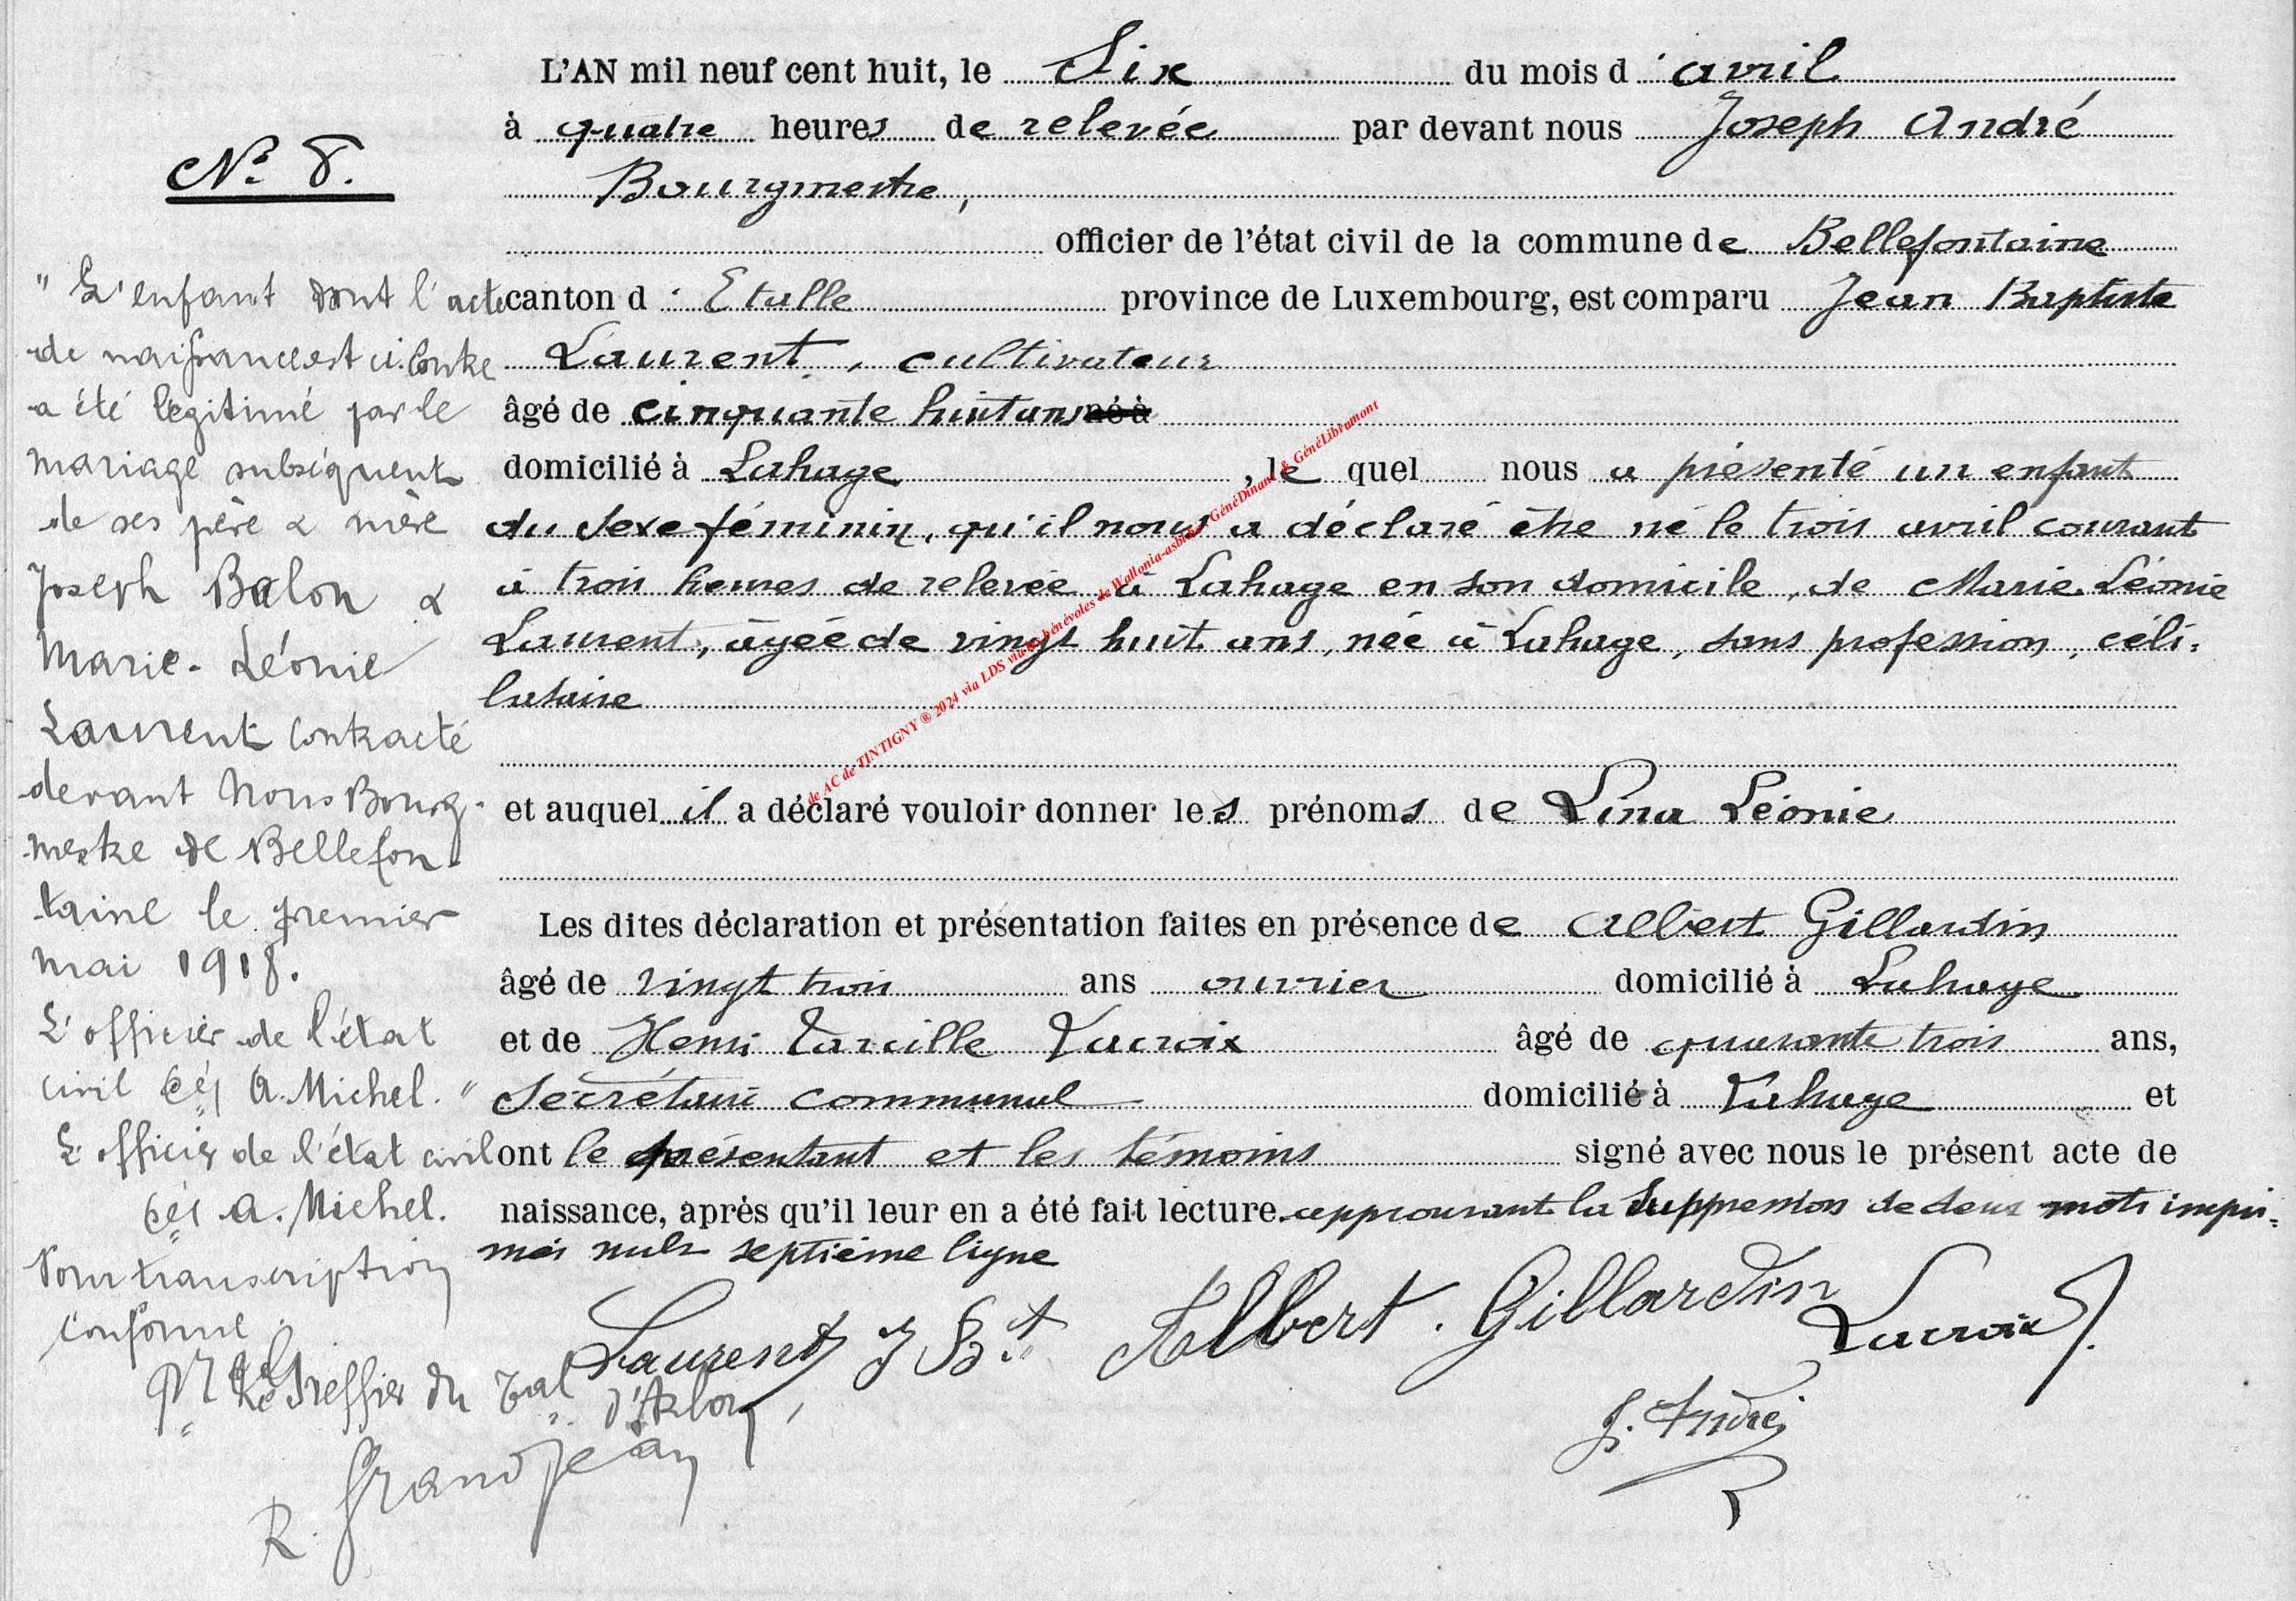 N° 8.
"L'enfant dont l'acte
de naissance est ci-contre
a été légitimé par le
mariage subséquent
de ses père & mère
Joseph Balon &
Marie-Léonie
Laurent contracté
devant Nous Bourg-
mestre de Bellefon-
taine le premier
mai 1918.
L'officier de l'état
civil (sé) A. Michel."
L'officier de l'état civil
(sé) A. Michel.
Pour transcription
conforme.
Le Greffier du Tal d'Arlon,
R. Grandjean
L'AN mil neuf cent huit, le Six du mois d'avril
à quatre heures de relevée par devant nous Joseph André
Bourgmestre,
officier de l'état civil de la commune de Bellefontaine
canton d'Etalle province de Luxembourg, est comparu Jean Baptiste
Laurent, cultivateur
âgé de cinquante huit ans né à
domicilié à Lahage, le quel nous a présenté un enfant
du sexe féminin, qu'il nous a déclaré être né le trois avril courant
à trois heures de relevée à Lahage en son domicile, de Marie Léonie
Laurent, âgée de vingt huit ans, née à Lahage, sans profession, céli=
bataire
et auquel il a déclaré vouloir donner les prénoms de Lina Léonie
Les dites déclaration et présentation faites en présence de Albert Gillardin
âgé de vingt trois ans ouvrier domicilié à Lahage
et de Henri Lacroix âgé de quarante trois ans,
Secrétaire communal domicilié à Lahage et
ont le présentant et les témoins signé avec nous le présent acte de
naissance, après qu'il leur en a été fait lecture. approuvant la suppression de deux mots impri=
més nuls septième ligne
Laurent J Bt Albert. Gillardin Lacroix
J. André
de AC de TINTIGNY ® 2024 via LDS via les bénévoles de Wallonia-asbl.be, GénéDinant & GénéLibramont